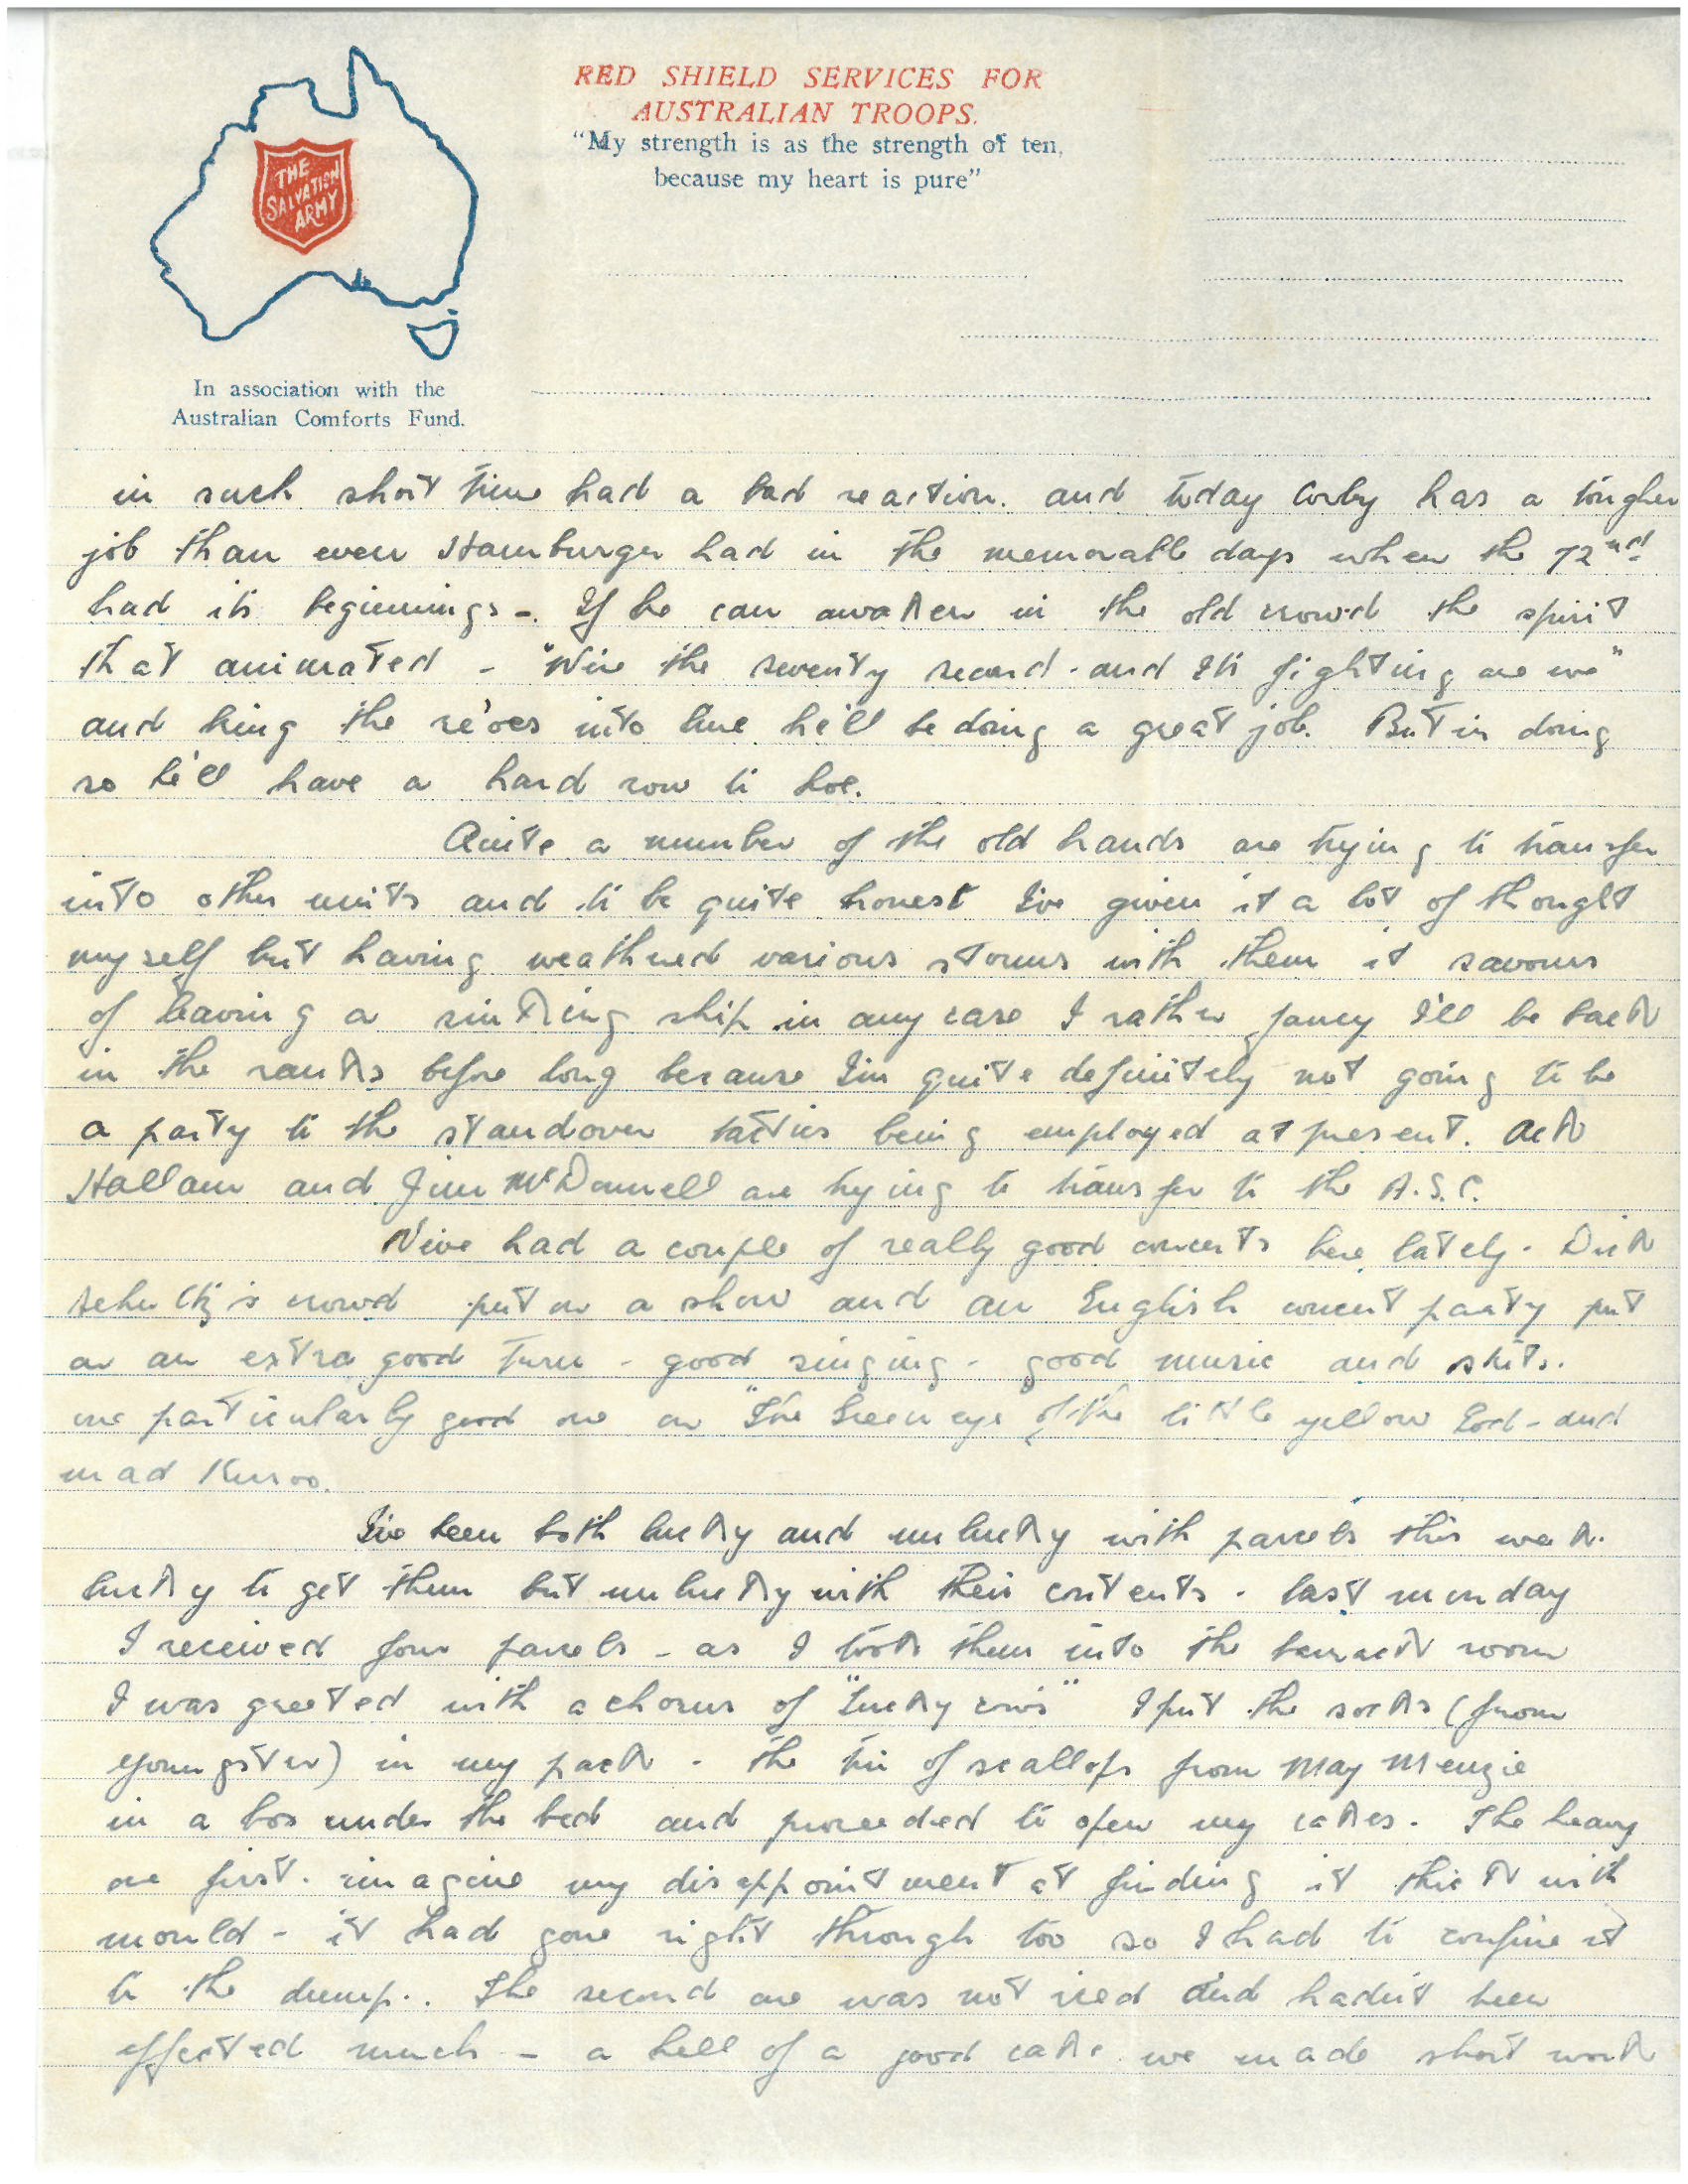 RED SHIELD SERVICES FOR
AUSTRALIAN TROOPS.
"My strength is as the strength of ten,
because my heart is pure"
THE
SALVATION
ARMY
In association with the
Australian Comforts Fund.
in such short time had a bad reaction. and today Corby has a tougher
job than even Hamburger had in the memorable days when the 72nd
had its beginnings -. If he can awaken in the old crowd the spirit
that animated - "We're the seventy second - and it's fighting are we"
and bring the re'oes into line he'll be doing a great job. But in doing
so he'll have a hard row to hoe.
Quite a number of the old hands are trying to transfer
into other units and to be quite honest I've given it a lot of thought
myself but having weathered various storms with them it savours
of leaving a sinking ship in any case I rather fancy I'll be back
in the ranks before long because I'm quite definitely not going to be
a party to the standover tactics being employed at present. Ack
Hallam and Jim McDonnell are trying to transfer to the A.S.C.
We've had a couple of really good concerts here lately. Dick
Schultz's crowd put on a show and an English concert party put
on an extra good turn - good singing - good music and skits.
one particularly good one on "The Green eye of the little yellow God - and
mad Kuroo.
I've been both lucky and unlucky with parcels this week.
lucky to get them but unlucky with their contents. last monday
I received four parcels - as I took them into the barrack room
I was greeted with a chorus of "lucky cows" I put the socks (from
youngster) in my pack - the tin of scallops from May Menzie
in a box under the bed and proceeded to open my cakes. The heavy
one first. imagine my disappointment at finding it thick with
mould - it had gone right through too so I had to confine it
to the dump.. The second one was not iced and hadn't been
effected much - a hell of a good cake we made short work